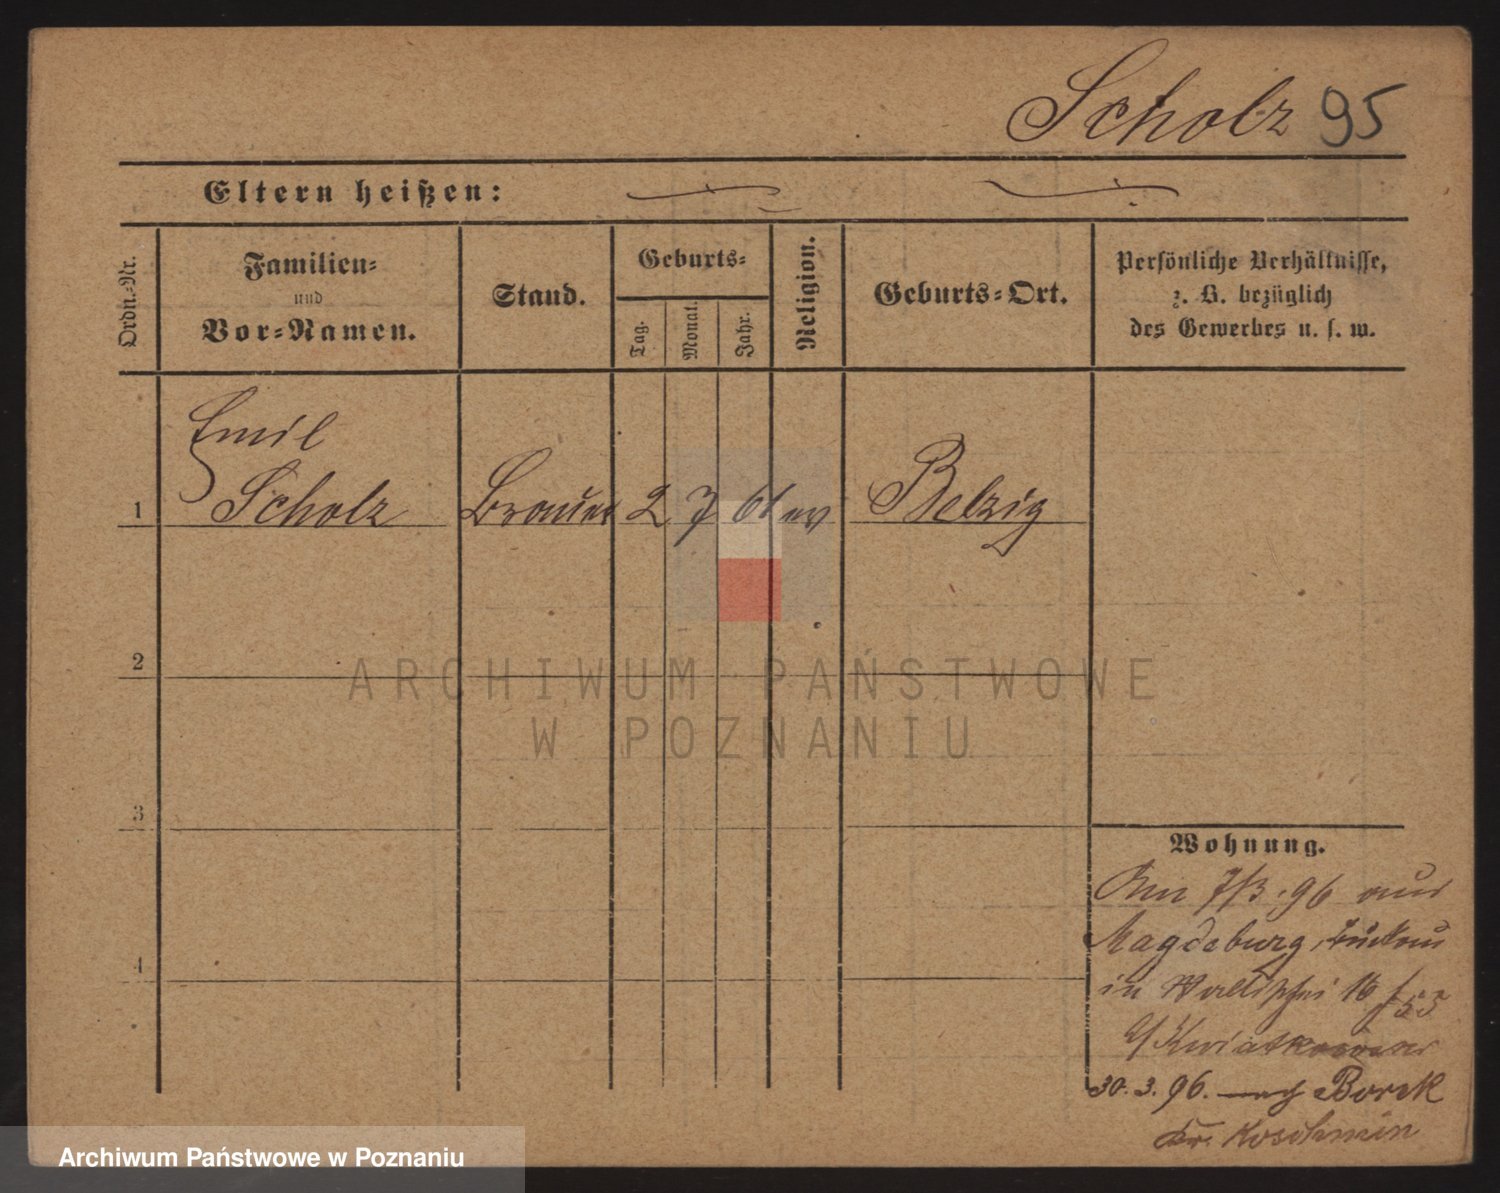 Scholz 95
Eltern heißen:
Ordn.-Nr.
Familien-
und
Vor-Namen.
Stand.
Geburts-
Tag.
Monat.
Jahr.
Religion.
Geburts-Ort.
Persönliche Verhältnisse,
z. B. bezüglich
des Gewerbes u. s. w.
Emil
1 Scholz Brauer 2 7 61 ev Belzig
2
ARCHIWUM PAŃSTWOWE
W POZNANIU
3
Wohnung.
7/3. 96 aus
Magdeburg,
4
in Wallischei 16
30. 3. 96. nach Borek
Kr. Koschmin
Archiwum Państwowe w Poznaniu